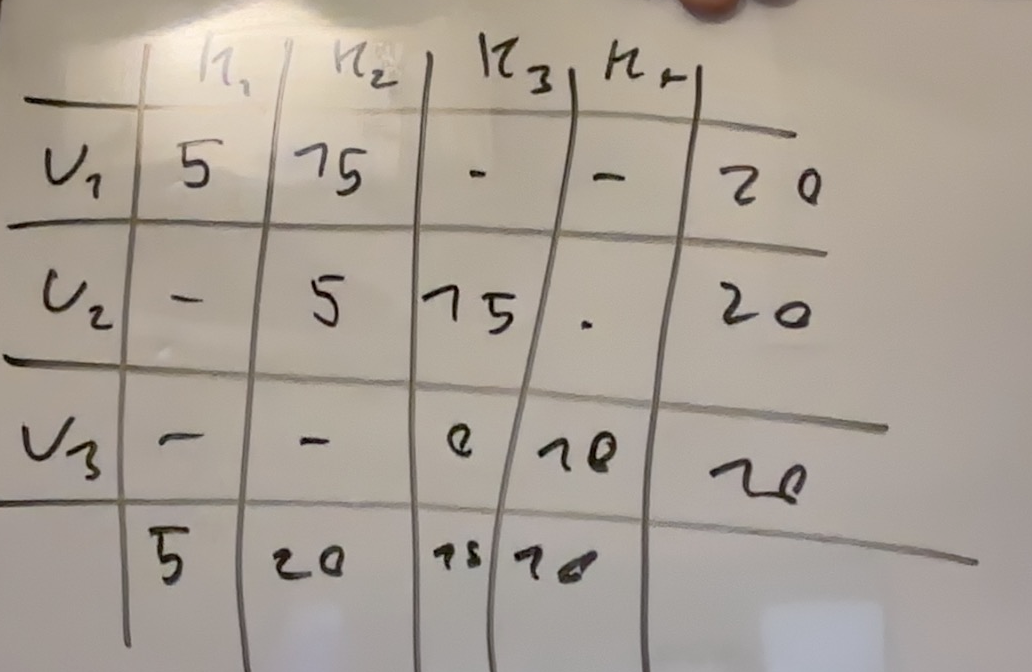 K₁ K₂ K₃ K₄
V₁ 5 15 - - 20
V₂ - 5 15 . 20
V₃ - - 0 10 10
5 20 15 10